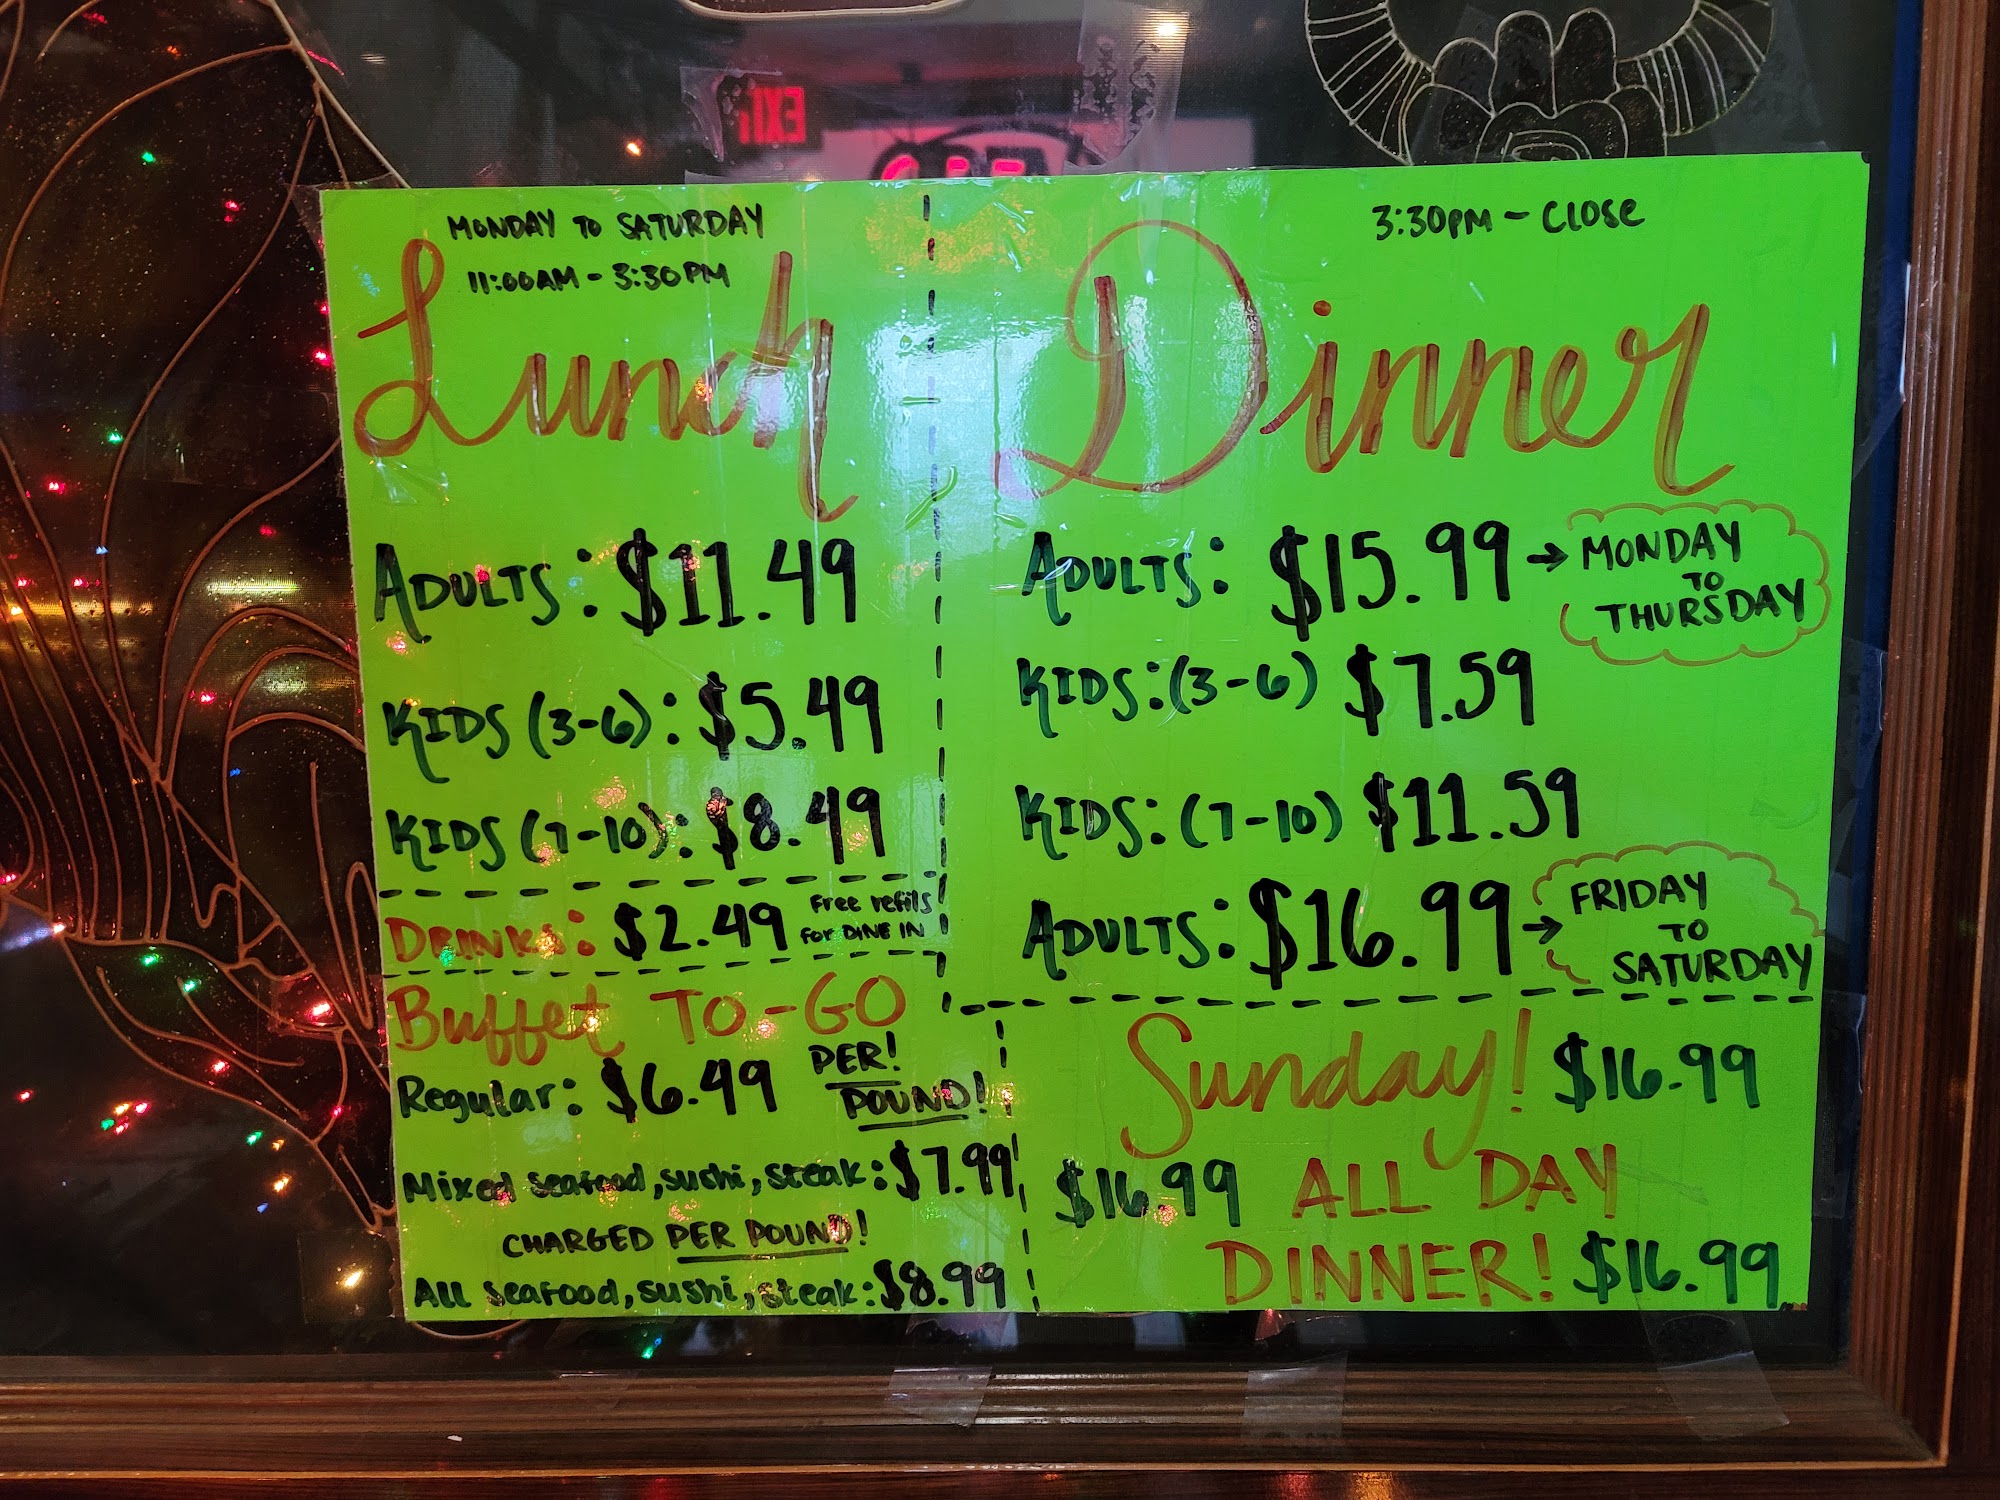 EXIT
MONDAY TO SATURDAY
11:00AM - 3:30PM
Lunch
ADULTS: $11.49
KIDS (3-6): $5.49
KIDS (7-10): $8.49
DRINKS: $2.49 Free refills
FOR DINE IN
Buffet TO-GO
Regular: $6.49 PER!
POUND!
Mixed seafood, sushi, steak: $7.99
CHARGED PER POUND!
All seafood, sushi, steak: $8.99
3:30PM - CLOSE
Dinner
ADULTS: $15.99 → MONDAY
TO
THURSDAY
KIDS: (3-6) $7.59
KIDS: (7-10) $11.59
ADULTS: $16.99 → FRIDAY
TO
SATURDAY
Sunday! $16.99
$16.99 ALL DAY
DINNER! $16.99